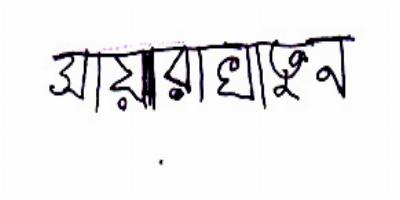 আয়রা খাতুন